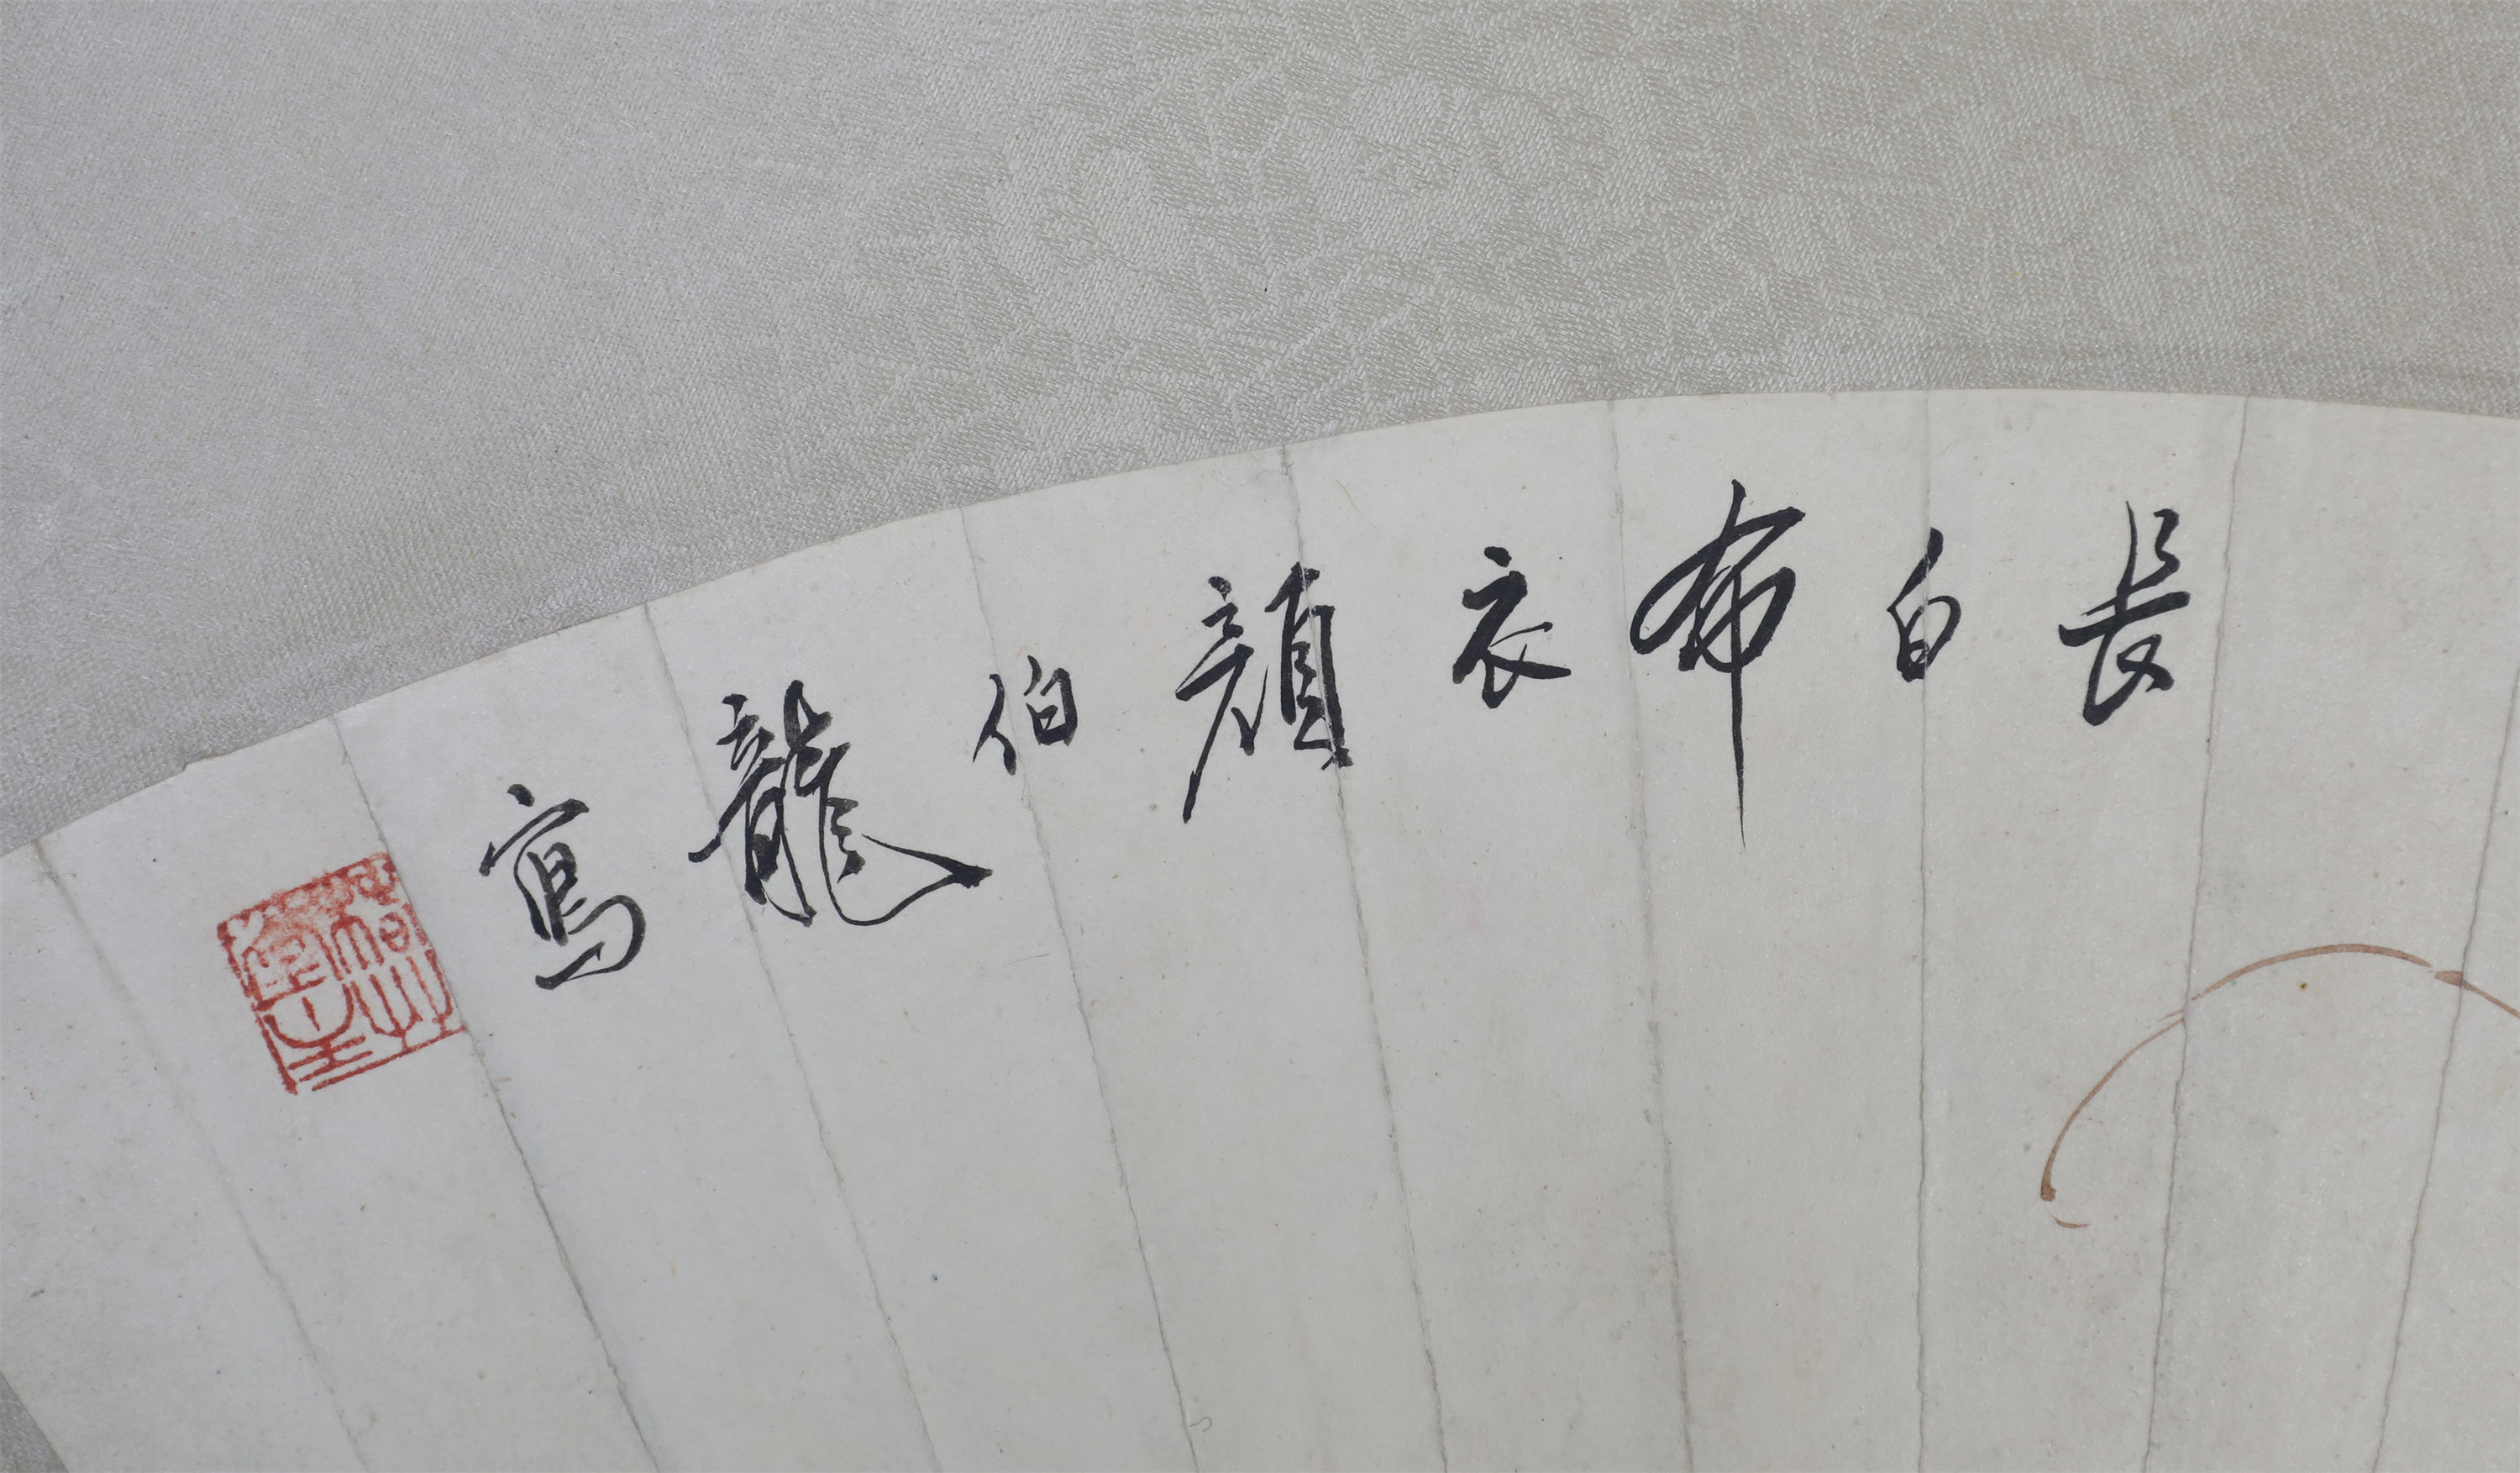 長白布衣顏伯龍寫